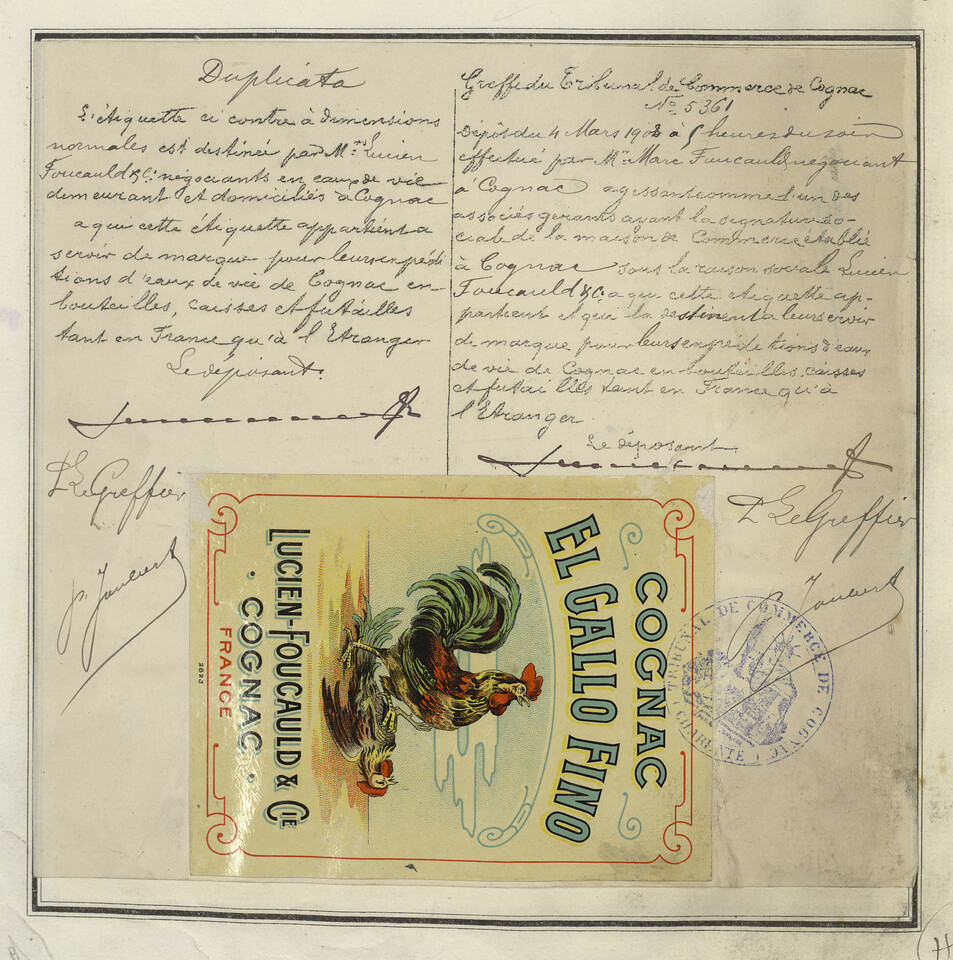 Duplicata
L'étiquette ci contre à dimensions
normales est destinée par Mrs Lucien
Foucauld & Cie négociants en eaux de vie
demeurant et domiciliés à Cognac
a qui cette étiquette appartient a
servir de marque pour leurs expédi
tions d'eaux de vie de Cognac en
bouteilles, caisses et futailles
tant en France qu'à l'Etranger
Le déposant.
P Le Greffier
Greffe du Tribunal de Commerce de Cognac
No 5361
Dépôt du 4 Mars 1908 à 5 heures du soir
effectué par Mr Marc Foucauld négociant
à Cognac agissant comme l'un des
associés gérants ayant la signature so-
ciale de la maison de Commerce établie
à Cognac sous la raison sociale Lucien
Foucauld & Cie a qui cette étiquette ap-
partient et qui la destinent a leur servir
de marque pour leurs expeditions d'eaux
de vie de Cognac en bouteilles, caisses
et futailles tant en France qu'à
l'Etranger
Le déposant
P Le Greffier
COGNAC
EL GALLO FINO
LUCIEN-FOUCAULD & CIE
• COGNAC •
FRANCE
2823
TRIBUNAL DE COMMERCE DE COGNAC
(CHARENTE)
H